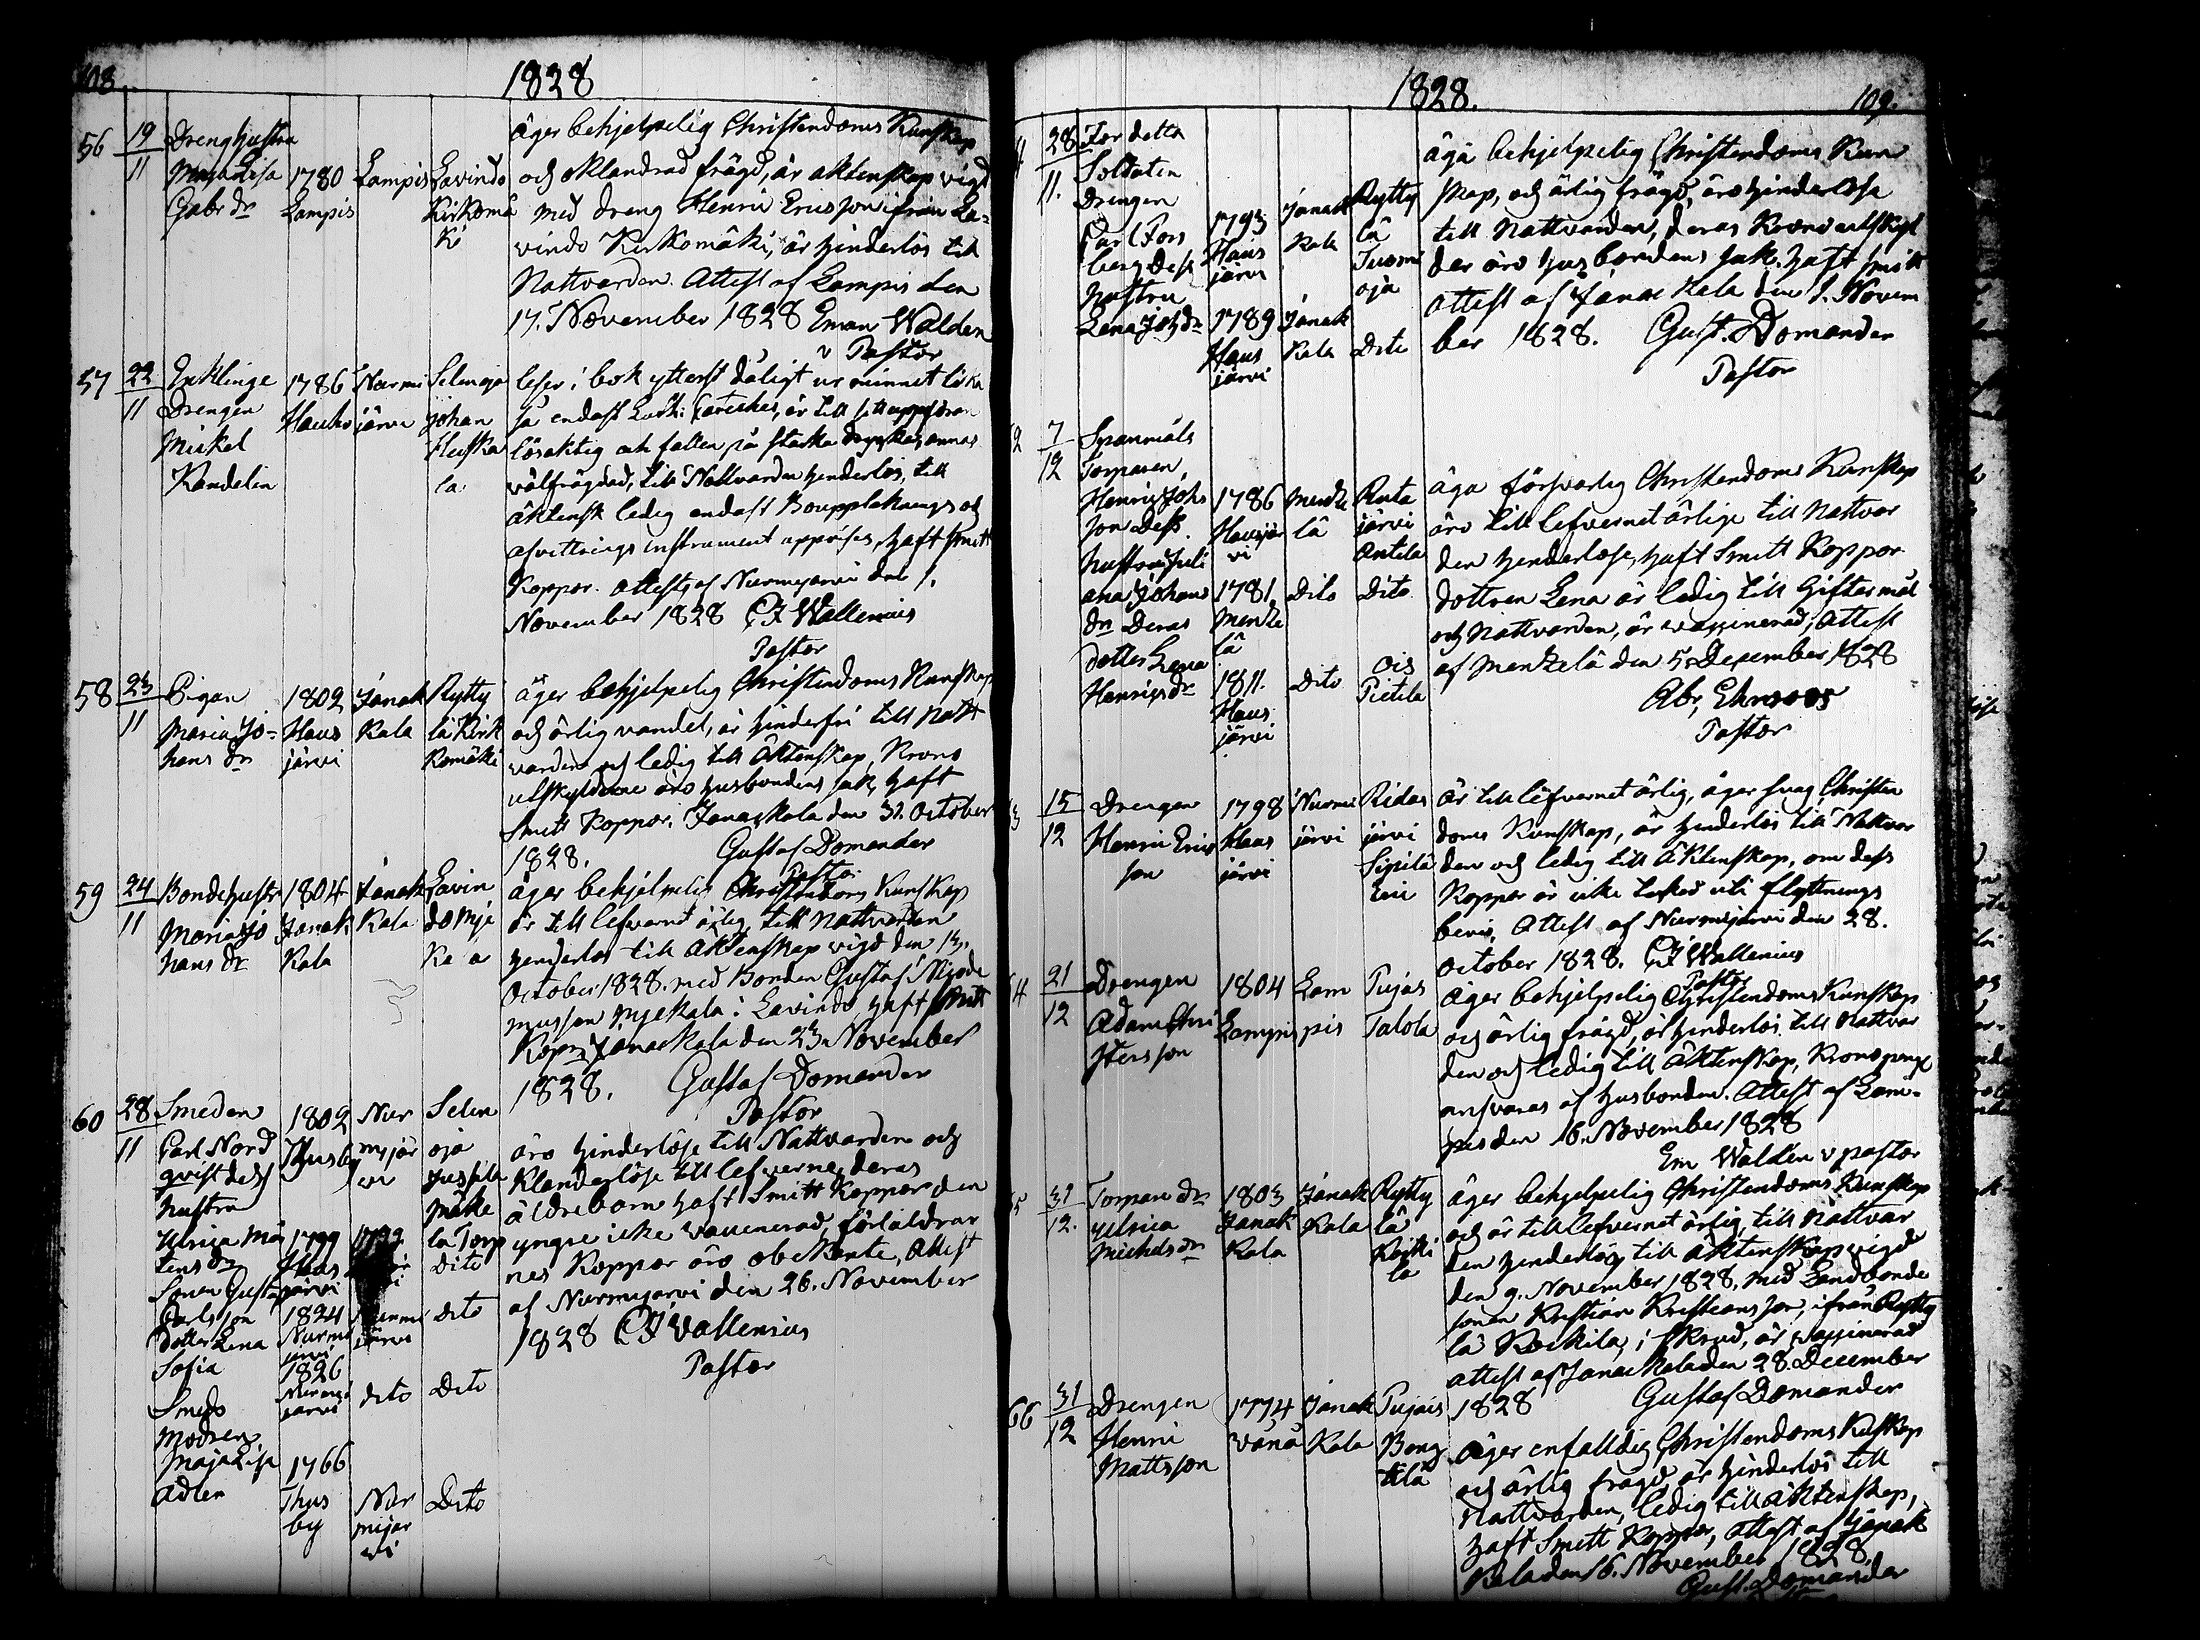 108
1828
56 19/11 Dreng hustru
Maja Lisa
Gabr dr
1780
Lampis
Lampis
Lavindo
Kirkomä
ki
äger behjelpelig Christendoms Kunskap
och oklandrad frägd, är äktenskap vigd
med Dreng Henric Ericsson ifrån La-
vindo Kirkomäki, är hinderlös till
Nattvarden. Attest af Lampis den
17. November 1828 Eman Walden
v Pastor
57 22/11
Inhlinge
Drengen
Mickel
Kandelin
1786
Hauho
Nurmi
järvi
Selinoja
Johan
Heuska
la
leser i bok ytterst dåligt ur minnet lika
så endast Luth: Cateches, är till sitt uppföran
lösaktig och fallen på starka drycker, annars
välfrägdad, till Nattvarden hinderlös, till
äktensk ledig endast Bouppteknings och
afvittrings instrument uppvises, haft Smitt
Koppor. attest af Nurmijärvi den 1.
November 1828 CJ Wallenius
Pastor
58 23/11
Pigan
Maria Jo-
hans dr
1802
Haus
järvi
Janak
kala
Rytty
lä Kirk
komäki
äger behjelpelig Christendoms Kunskap
och ärlig vandel, är hinderfri till Natt
varden och ledig till Äktenskap, Krono
utskylderne äro husbondens sak, haft
Smitt Koppor. Janackala den 31. October
1828. Gustaf Domander
Pastor
59 24/11
Bondehustr
Maria Jo
hans dr
1804
Janak
kala
Janak
kala
Lavin
do Mje
ka a
äger behjelpelig Christendoms Kunskap
är till lefvernet ärlig, till Nattvarden
hinderlös till Äktenskap vigd den 13.
October 1828. med Bonden Gustaf Nigode
musson Mjekala i Lavindo, haft Smitt
Koppor Janackala den 23. November
1828. Gustaf Domander
Pastor
60 28/11
Smeden
Carl Nord
qvist dess
hustru
Ulrica Mår
tens dr
Sonen Gustaf
Carlsson
Dotter Lena
Sofia
Smeds
Modren
Maja Lisa
Adler
1802
Thusby
1799
Haus
järvi
1824
Nurmi
järvi
1826
Nurmi
järvi
1766
Thus
by
Nur
mijär
vi
Nurmi
järvi
dito
Nur
mijär
vi
Selin
oja
Jussila
Mäke
la Torp
Dito
Dito
Dito
Dito
äro hinderlöse till Nattvarden och
Klanderlöse till lefverne, deras
äldre barn haft Smitt Koppor den
yngre icke vaccinerad, föräldrar
nes Koppor äro obekante, Attest
af Nurmijärvi den 26. November
1828 CJ Wallenius
Pastor
1828.
109.
28/11.
For detta
Soldaten
Drengen
Carl Fors
berg Dess
hustru
Lena Joh dr
1793
Haus
järvi
1789
Haus
järvi
Janak
kala
Janak
kala
Rytty
lä
Tuomi
oja
Dito
äga behjelpelig Christendoms Kun
skap, och ärlig frägd, äro hinderlösa
till Nattvarden, deras Kronoutskyl
der äro husbondens sak. haft smitt
attest af Janackala den 1. Novem
ber 1828. Gust. Domander
Pastor
2 7/12
Spanmåls
Torparen,
Henric Johs
son Dess
hustru Juli
ana Johans
dr Deras
dotter Lena
Henrics dr
1786
Hausjär
vi
1781.
Mentze
lä
1811.
Haus
järvi
Mentze
lä
Dito
Dito
Ruta
järvi
Antila
Dito
Ois
Pietila
äga försvarlig Christendoms Kunskap
äro till lefvernet ärlige till Nattvar
den hinderlöse, haft Smitt Koppor
dottren Lena är ledig till Giftermål
och Nattvarden, är vaccinerad, Attest
af Mentzelä den 5. December 1828
Abr. Ehnroos
Pastor
3 15/12
Drengen
Henric Erics
son
1798
Haus
järvi
Nurmi
järvi
Ridas
järvi
Sipilä
Eric
är till lefvernet ärlig, äger svag Christen
doms Kunskap, är hinderlös till Nattvar
den och ledig till Äktenskap, om dess
Koppor är icke tecknad uti flyttnings
bevis, Attest af Nurmijärvi den 28.
October 1828. CJ Wallenius
Pastor
4 21/12
Drengen
Adam Chri
stersson
1804
Lampis
Lam
pis
Pujas
Talola
äger behjelpelig Christendoms Kunskap
och ärlig frägd, är hinderlös till Nattvar
den och ledig till Äktenskap, Kronopengr
ansvaras af husbonden. Attest af Lam-
pis den 16. November 1828
Em Walden v pastor
5 31/12.
Torpare dr
Ulrica
Michels dr
1803
Janak
kala
Janak
kala
Rytty
lä
Koiki
la
äger behjelpelig Christendoms Kunskap
och är till lefvernet ärlig, till Nattvar
den hinderlös, till äktenskap vigd
den 9. November 1828. med Landbonde
sonen Kristian Kristiansson, ifrån Rytty
lä Kockila, i åkrud, är vaccinerad
attest af Janackala den 28. December
1828 Gustaf Domander
66 31/12
Drengen
Henric
Mattsson
1774
Vånå
Janak
kala
Pujais
Bong
tila
äger enfalldig Christendoms Kuskap
och ärlig frägd, är hinderlös till
Nattvarden, ledig till äktenskap,
haft Smitt Koppor, attest af Janak
kala den 16. November 1828.
Gust. Domander